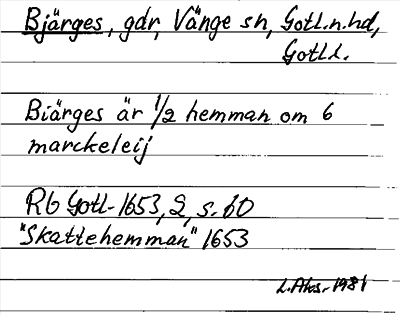 Bjärges, gdr, Vänge sn, Gotl.n.hd,
Gotl.l.
Biärges är 1/2 hemman om 6
marckeleij
Rb Gotl-1653, 2, s. 60
"Skattehemman" 1653
L.Aks. 1981